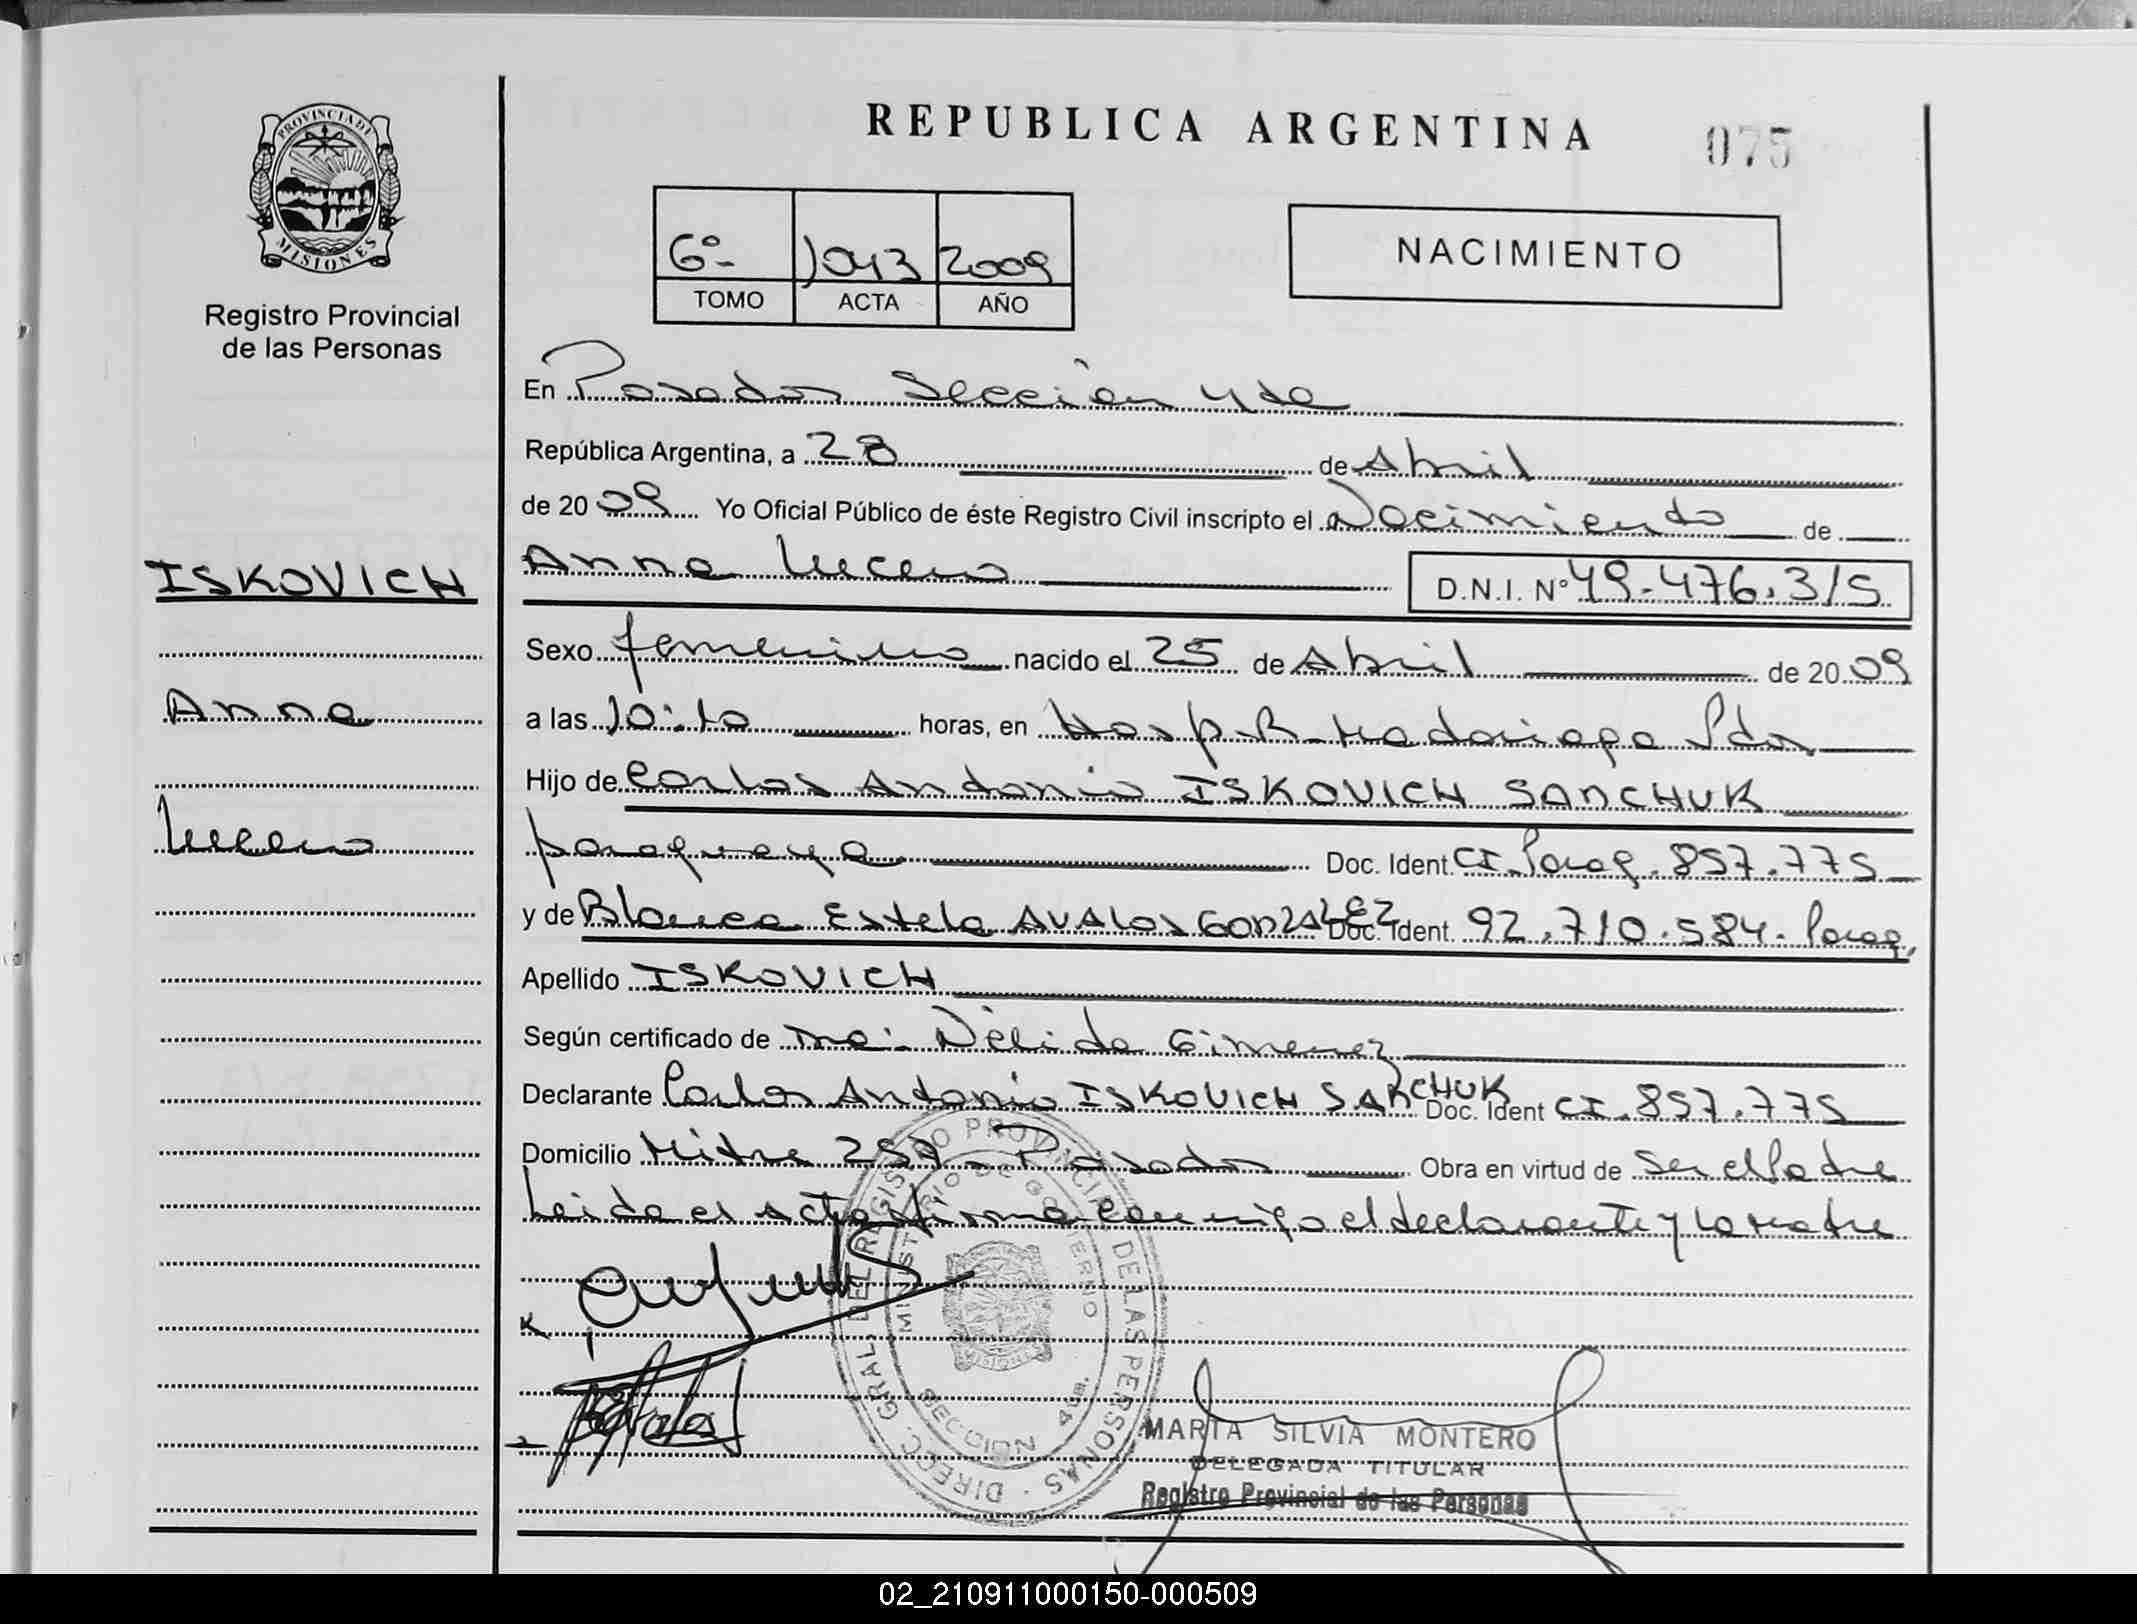 REPUBLICA ARGENTINA
075
PROVINCIA DE
MISIONES
Registro Provincial
de las Personas
6º- 1043 2009
TOMO ACTA AÑO
NACIMIENTO
En Posadas Sección 4ta
República Argentina, a 28 de Abril
de 2009 Yo Oficial Público de éste Registro Civil inscripto el Nacimiento de
ISKOVICH
Anna
Lucero
Anna Lucero
D.N.I. Nº 49.476.315
Sexo femenino nacido el 25 de Abril de 2009
a las 10:10 horas, en Hosp. R. Madariaga Pdas
Hijo de Carlos Antonio ISKOVICH SANCHUK
paraguaya Doc. Ident. CI. Parag. 857.775
y de Blanca Estela AVALOS GONZALEZ Doc. Ident. 92.710.584. Parag.
Apellido ISKOVICH
Según certificado de Nélida Gimenez
Declarante Carlos Antonio ISKOVICH SANCHUK Doc. Ident CI. 857.775
Domicilio Mitre 257 - Posadas Obra en virtud de Ser el Padre
Leida el acta firma conmigo el declarante y la madre
DIREC. GRAL. DEL REGISTRO PROVINCIAL DE LAS PERSONAS
MINISTERIO DE GOBIERNO
MISIONES
SECCION 4ta.
MARTA SILVIA MONTERO
DELEGADA TITULAR
Registro Provincial de las Personas
02_210911000150-000509